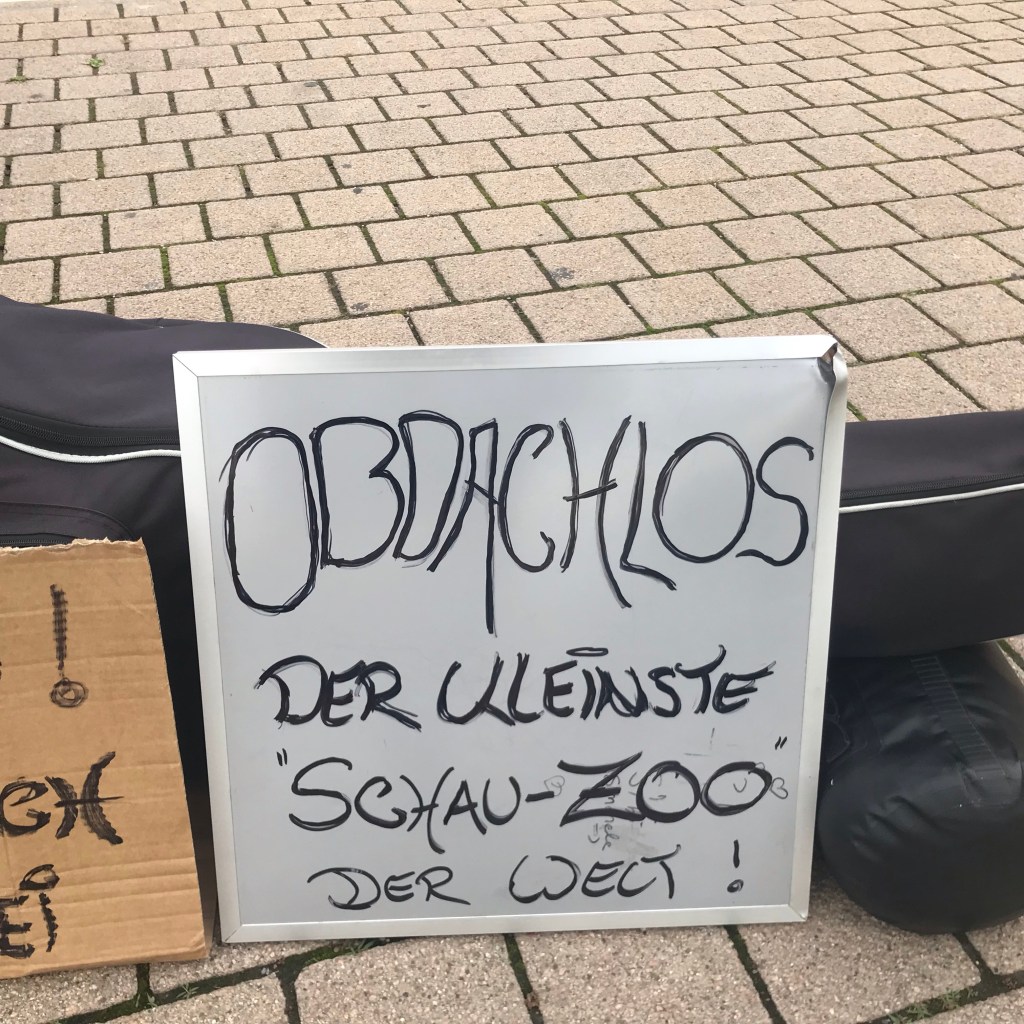 OBDACHLOS
DER KLEINSTE
"SCHAU-ZOO"
DER WELT !
!
CH
Ei